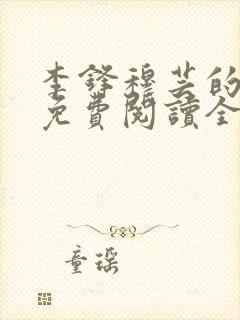 李鋒穆芸的
免費閱讀全
童瑤